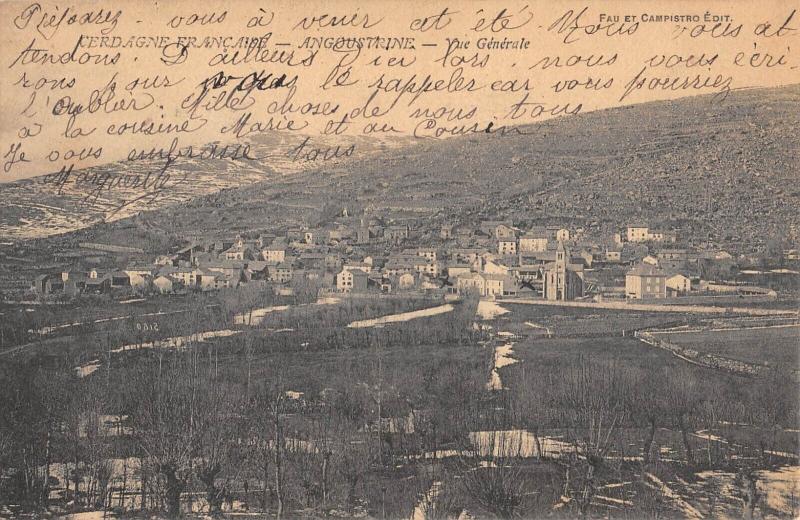 Préparez - vous à venir cet été. Nous vous at
FAU ET CAMPISTRO ÉDIT.
CERDAGNE FRANÇAISE — ANGOUSTRINE — Vue Générale
tendons. D'ailleurs d'ici lors, nous vous écri-
rons pour vous le rappeler car vous pourriez
l'oublier. Mille choses de nous tous
à la cousine Marie et au Cousin
Je vous embrasse tous
Marguerite